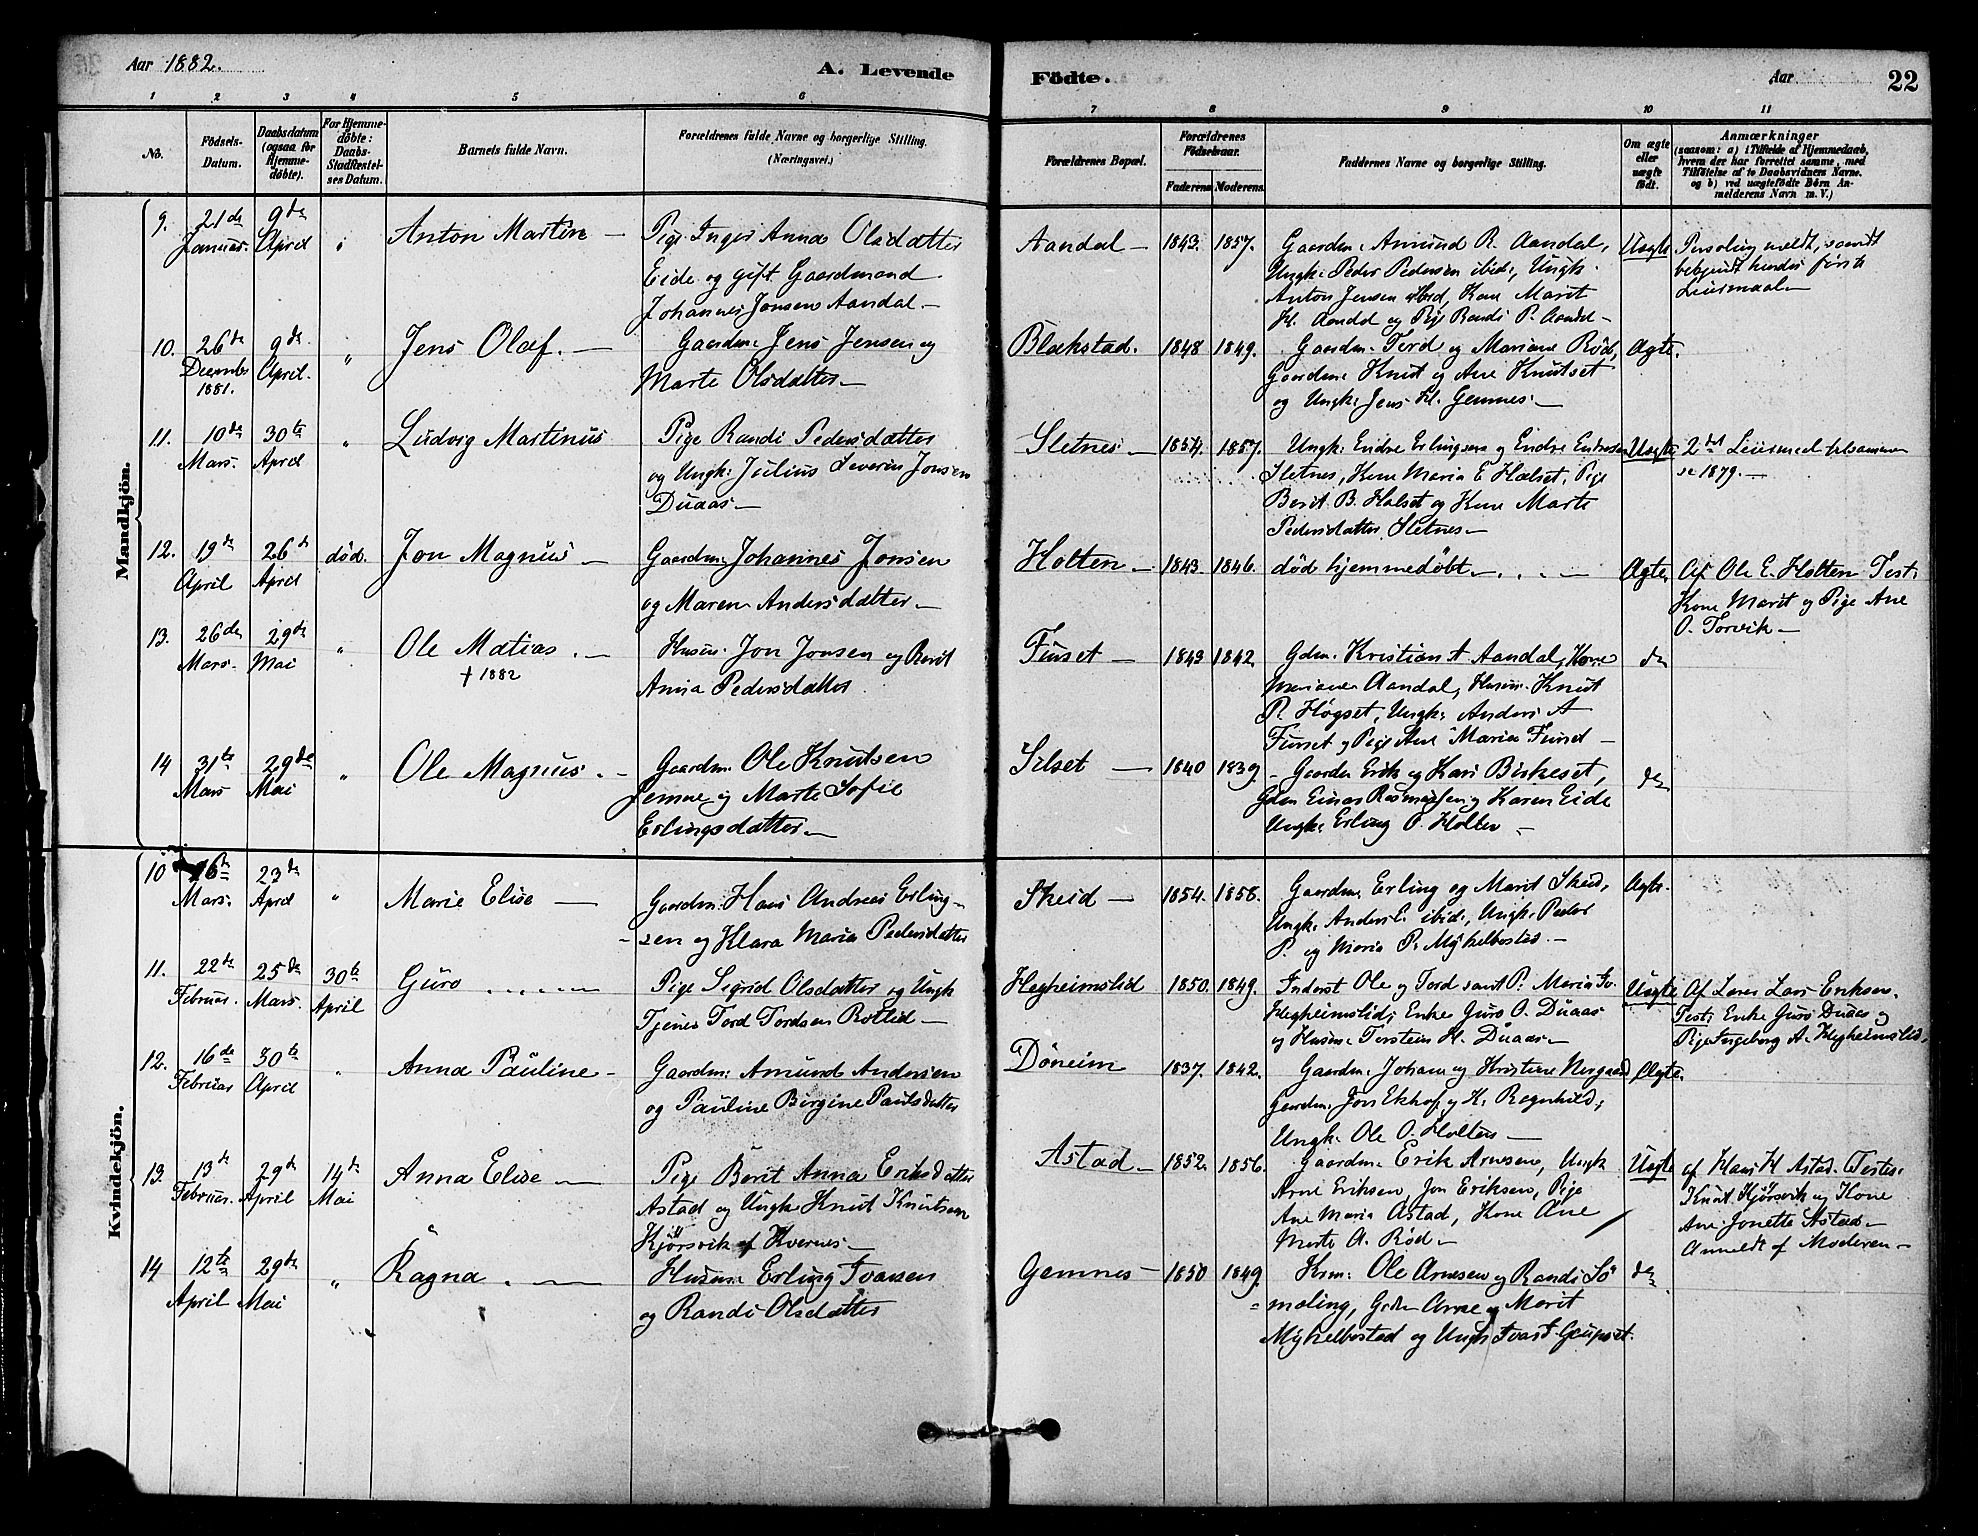 Aar 1882.
A. Levende
Födte.
Aar
22
1 2 3 4 5 6 7 8 9 10 11
No.
Födsels-Datum.
Daabsdatum (ogsaa for Hjemme-döbte).
For Hjemme-döbte: Daabs-Stadfæstel-ses Datum.
Barnets fulde Navn.
Forældrenes fulde Navne og borgerlige Stilling. (Næringsvei.)
Forældrenes Bopæl.
Forældrenes Födselsaar.
Faderens Moderens.
Faddernes Navne og borgerlige Stilling.
Om ægte eller uægte födt.
Anmærkninger
(saasom: a) i Tilfælde af Hjemmedaab, hvem der har forrettet samme, med Tilföielse af to Daabsvidners Navne. og b) ved uægtefödte Börn An-melderens Navn m. V.)
Mandkjön.
9. 21de Januar. 9de April Anton Martin —
Pige Inger Anna Olsdatter
Eide og gift Gaardmand
Johannes Jonsen Aandal. —
Aandal — 1843. 1857.
Gaardm. Amund R. Aandal,
Ungk: Peder Pedersen ibid:, Ungk.
Anton Jensen Herd, Kone Marit
H. Aandal og Pige Randi P. Aandal —
Uægte
10. 26de December 1881. 9de April. " Jens Olaf. —
Gaardm: Jens Jensen og
Marte Olsdatter —
Blakstad. 1848 1849.
Gaardm: Tord og Mariane Röd,
Gaardm: Knut og Ane Knutset
og Ungk: Jens H. Gemnes. —
Ægte.
11. 10de Mars. 30te April " Ludvig Martinus
Pige Randi Pedersdatter
og Ungk: Julius Severin Jonsen
Duaas —
Sletnes — 1854. 1857.
Ungk: Endre Erlingsen og Endre Endresen
Sletnes, Kone Maria E. Halset, Pige
Berit B. Halset og Kone Marte
Pedersdatter Sletnes —
Uægte 2det Leiermaal tilsammen
se 1879. —
12. 19de April 26de April död. Jon Magnus —
Gaardm: Johannes Jonsen
og Maren Andersdatter —
Holten — 1843 1846.
död hjemmedöbt —
Ægte. Af Ole E. Holten Test:
Kone Marit og Pige Ane
O. Torvik —
13. 26de Mars. 29de Mai " Ole Matias. —
+ 1882
Husm. Jon Jonsen og Berit
Anna Pedersdatter.
Furset — 1849 1842.
Gdm. Kristian A Aandal, Kone
Mariane Aandal, Husm. Knut
P. Högset, Ungk: Anders A
Furset og Pige Ane Maria Furset —
do
14 31te Mars 29de Mai " Ole Magnus. —
Gaardm. Ole Knutsen
Jemne og Marte Sofie
Erlingsdatter —
Silset — 1840 1839.
Gaardm Erik og Kari Birkeset,
Gdm Einar Rasmussen og Karen Eide
Ungk: Erling O. Holten —
do
Kvindekjön.
10 16de Mars. 23de April " Marie Elise —
Gaardm: Hans Andreas Erling-
-sen og Klara Maria Pedersdatter
Skeid — 1854. 1858.
Gaardm: Erling og Marit Skeid,
Ungk. Anders E. ibid:, Ungk: Peder
P. og Maria P. Myklebostad. —
Ægte.
11. 22de Februar. 25de Mars. 30te April Guro
Pige Sigrid Olsdatter og Ungk
Tjener Tord Tordsen Rotlid —
Hegheimslid 1850. 1849.
Inderst Ole og Tord samt P: Maria Iv.
Hegheimslid, Enke Guro O. Duaas
og Husm: Torstein H. Duaas —
Uægte Af Lærer Lars Eriksen.
Test: Enke Guro Duaas og
Pige Ingeborg A. Hegheimslid.
12. 16de Februar 30te April " Anna Pauline —
Gaardm: Amund Andersen
og Pauline Birgine Paulsdatter
Döneim 1837. 1842.
Gaardm: Johan og Kristine Nergaard
Gaardm: Jon Ekhof og H. Ragnhild,
Ungk. Ole O. Holten —
Ægte.
13. 13de Februar. 29de April 14de Mai Anna Elise —
Pige Berit Anna Eriksdatter
Astad og Ungk Knut Knutsen
Kjörsvik af Kvernes —
Astad — 1852. 1856.
Gaardm: Erik Arnesen, Ungk
Arne Eriksen, Jon Eriksen, Pige
Ane Maria Astad, Kone Ane
Marte A. Röd —
Uægte af Hans H. Astad. Testes:
Knut Kjörsvik og Kone
Ane Jonette Astad —
Anmeldt af Moderen —
14 12te April 29de Mai " Ragna. —
Husm: Erling Ivarsen
og Randi Olsdatter
Gemnes — 1850 1849.
Krm: Ole Arnesen og Randi Sö
= moling, Gdm Arne og Marit
Myklebostad og Ungk Ivar I. Gaupset.
do